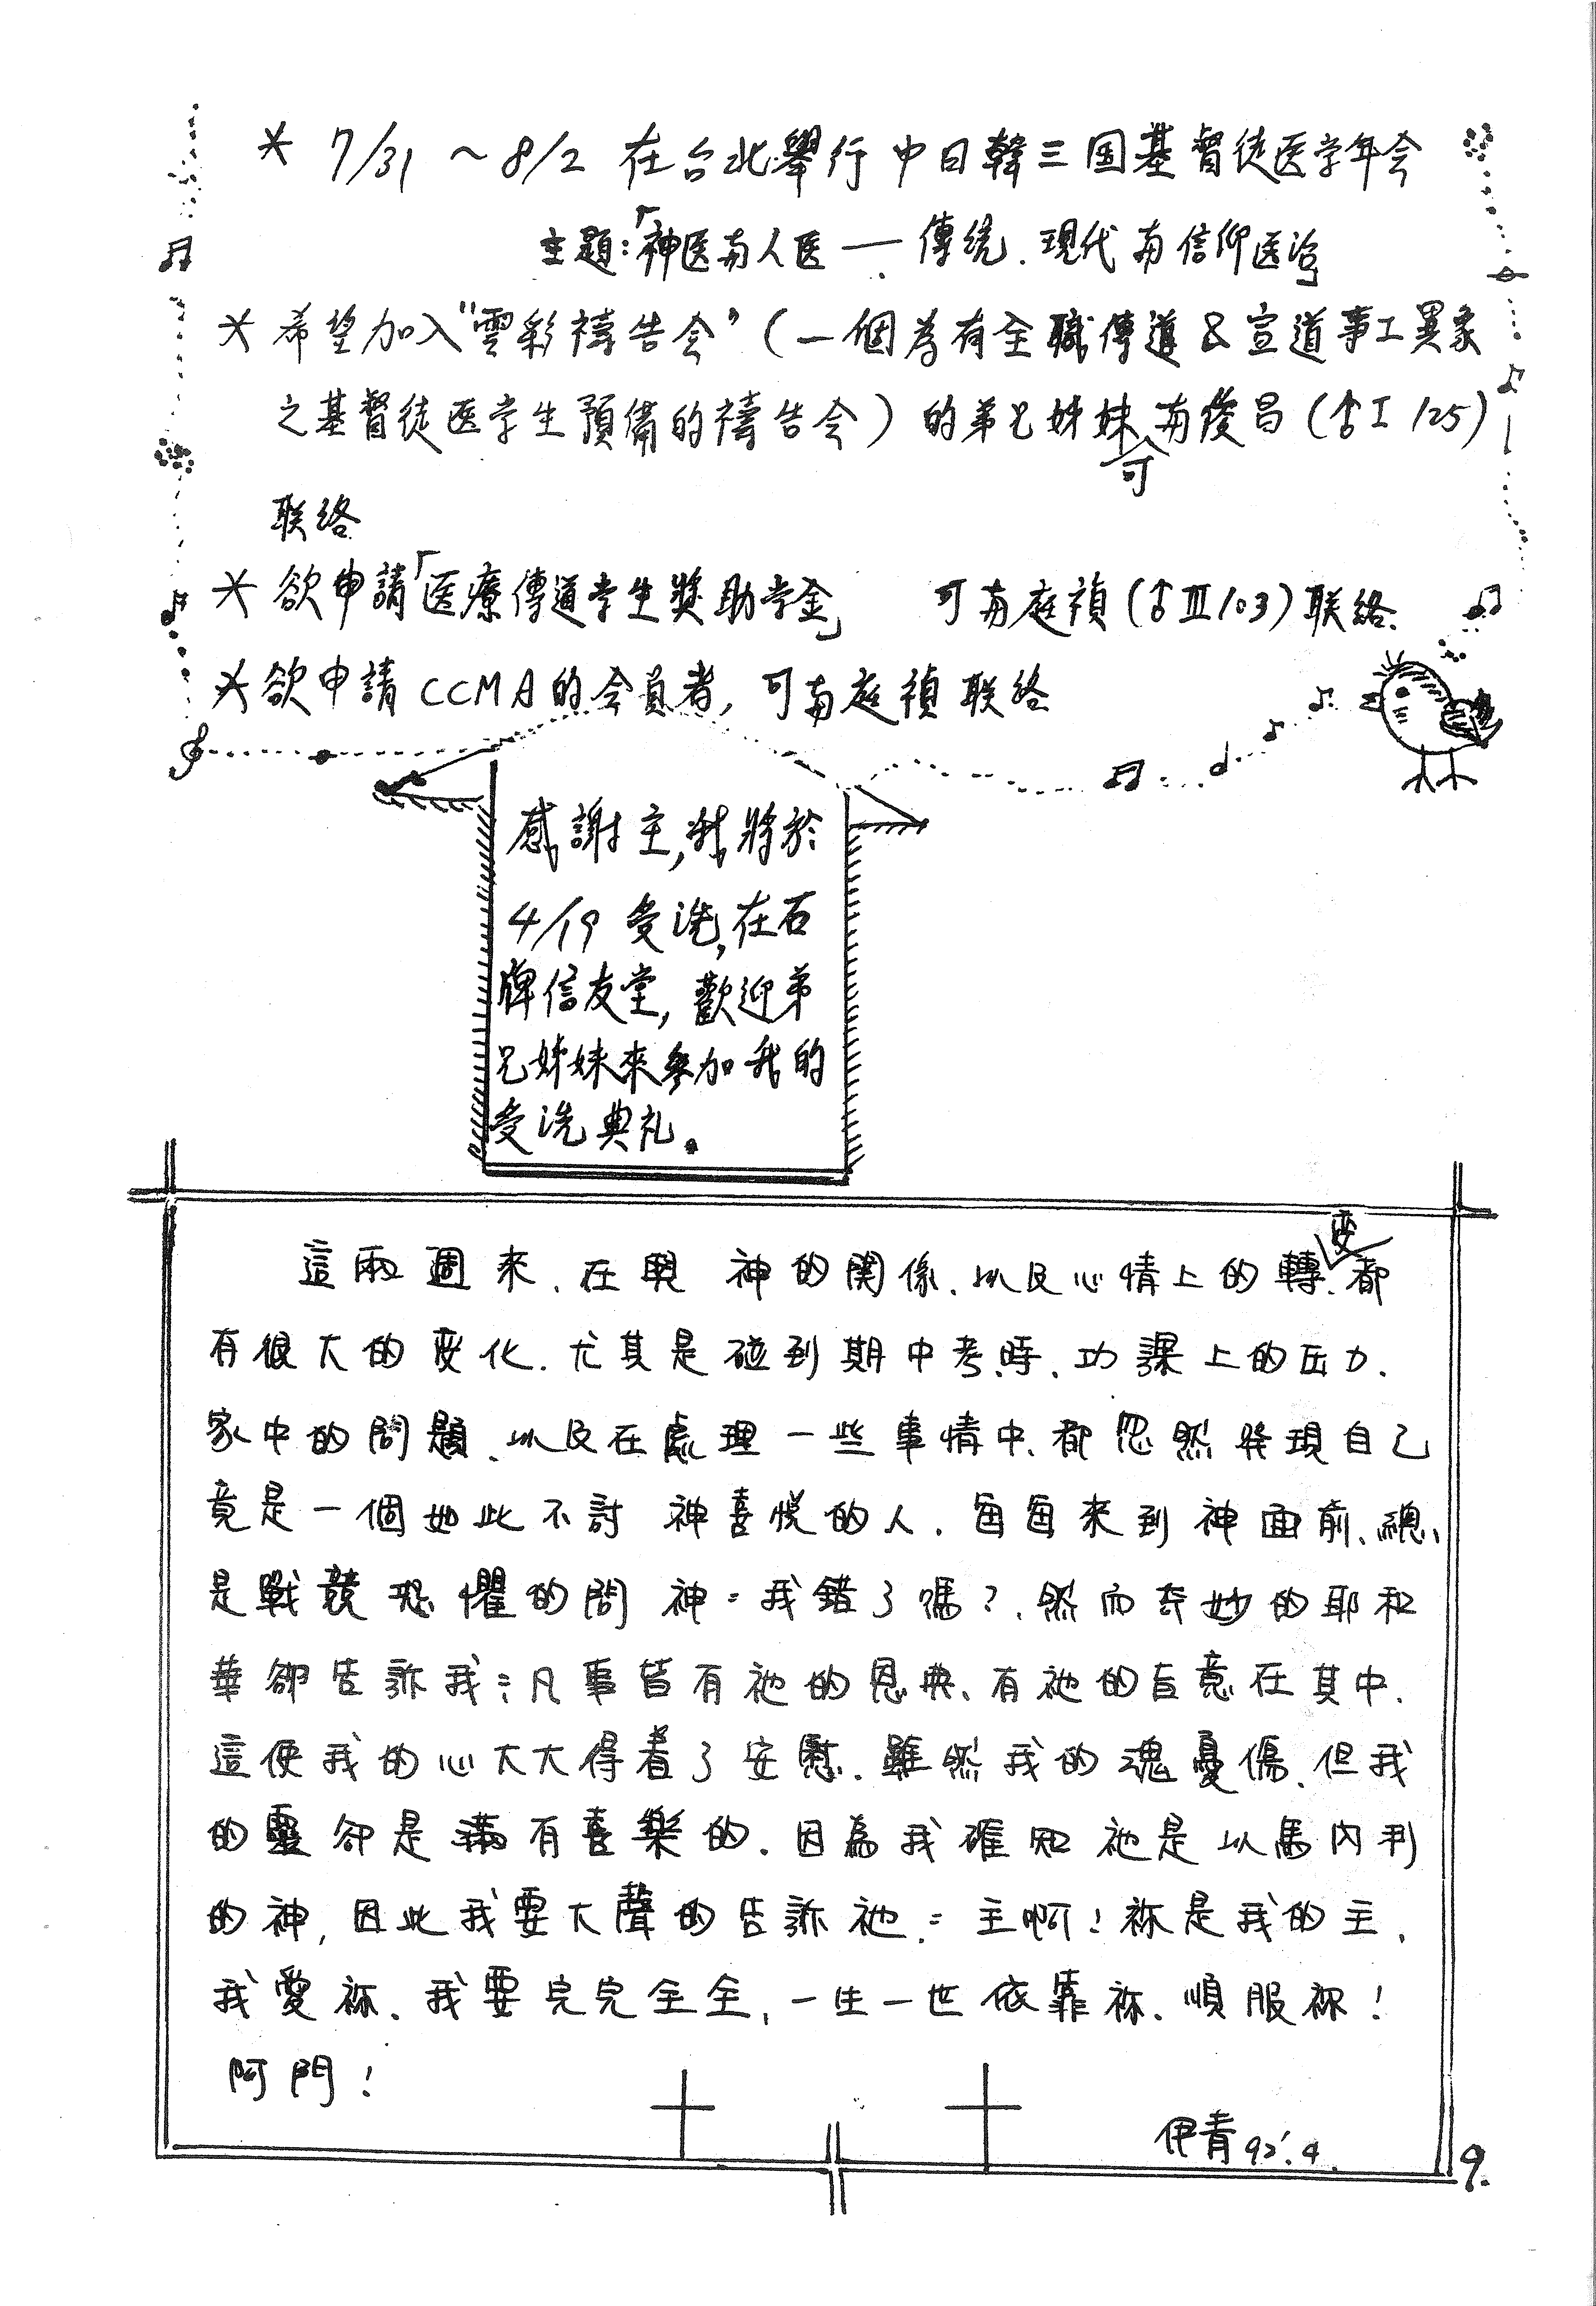 * 7/31 ~ 8/2 在台北舉行中日韓三国基督徒医学年会
主題:「神医与人医——傳統.現代与信仰医治」
* 希望加入"雲彩禱告会"(一個為有全職傳道&宣道事工異象
之基督徒医学生預備的禱告会)的弟兄姊妹可与俊昌(♂I 125)
联络
* 欲申請「医療傳道学生獎助学金」 可与庭禎(♂III 103)联絡.
* 欲申請CCMA的会員者,可与庭禎联络
感謝主,我將於
4/19受洗,在石
牌信友堂,歡迎弟
兄姊妹來參加我的
受洗典礼。
這兩週來.在與 神的関係.以及心情上的轉変.都
有很大的変化.尤其是碰到期中考時.功課上的压力.
家中的問題、以及在處理一些事情中、都忽然發現自己
竟是一個如此不討 神喜悅的人.每每來到神面前、總、
是戰競恐懼的問 神:我錯了嗎?.然而奇妙的耶和
華卻告訴我:凡事皆有祂的恩典、有祂的旨意在其中.
這使我的心大大得着了安慰.雖然我的魂憂傷、但我
的靈卻是滿有喜樂的.因為我確知祂是以馬內利
的神,因此我要大聲的告訴祂:主啊!祢是我的主,
我愛祢.我要完完全全,一生一世依靠祢、順服祢!
阿門!
伊青 92'.4.
9.